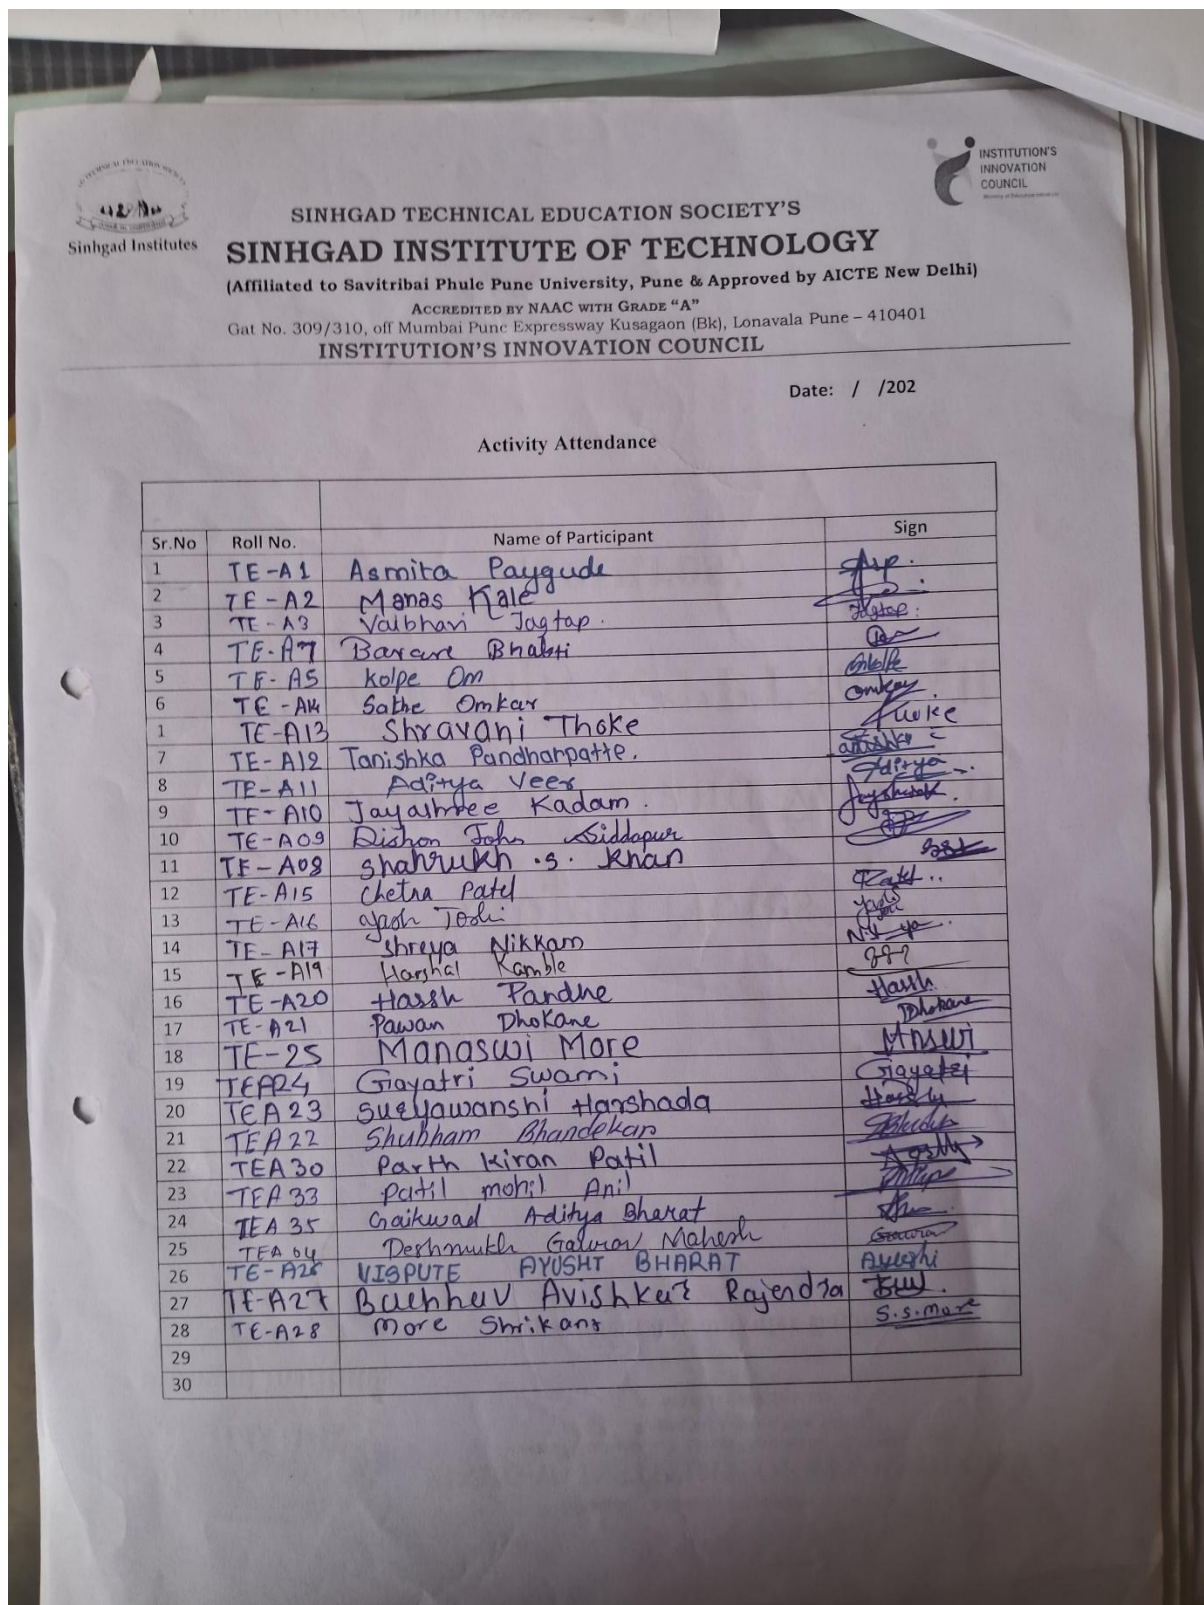 Sinhgad Institutes
INSTITUTION'S
INNOVATION
COUNCIL
SINHGAD TECHNICAL EDUCATION SOCIETY'S
SINHGAD INSTITUTE OF TECHNOLOGY
(Affiliated to Savitribai Phule Pune University, Pune & Approved by AICTE New Delhi)
ACCREDITED BY NAAC WITH GRADE "A"
Gat No. 309/310, off Mumbai Pune Expressway Kusagaon (Bk), Lonavala Pune – 410401
INSTITUTION'S INNOVATION COUNCIL
Date: / /202
Activity Attendance
Sr.No Roll No. Name of Participant Sign
1 TE-A1 Asmita Paygude
2 TE-A2 Manas Kale
3 TE-A3 Vaibhavi Jagtap. Jagtap.
4 TE-A7 Barare Bhakti
5 TE-A5 Kolpe Om
6 TE-A14 Sathe Omkar Omkar.
1 TE-A13 Shravani Thoke Thoke
7 TE-A12 Tanishka Pandharpatte.
8 TE-A11 Aditya Veer Aditya
9 TE-A10 Jayashree Kadam.
10 TE-A09 Dishon John Siddapur
11 TE-A08 Shahrukh .S. Khan
12 TE-A15 Chetna Patel
13 TE-A16 Yash Joshi
14 TE-A17 Shreya Nikkam
15 TE-A19 Harshal Kamble
16 TE-A20 Harsh Pandhe Harsh
17 TE-A21 Pawan Dhokane Dhokane
18 TE-25 Manaswi More
19 TEA24 Gayatri Swami Gayatri
20 TEA23 Suryawanshi Harshada
21 TEA22 Shubham Bhandekar
22 TEA30 Parth Kiran Patil
23 TEA33 Patil mohil Anil
24 TEA35 Gaikwad Aditya Bharat
25 TEA04 Deshmukh Gaurav Mahesh Gaurav
26 TE-A26 VISPUTE AYUSHI BHARAT Ayushi
27 TE-A27 Bachhav Avishkar Rajendra
28 TE-A28 More Shrikant S.S.More
29
30